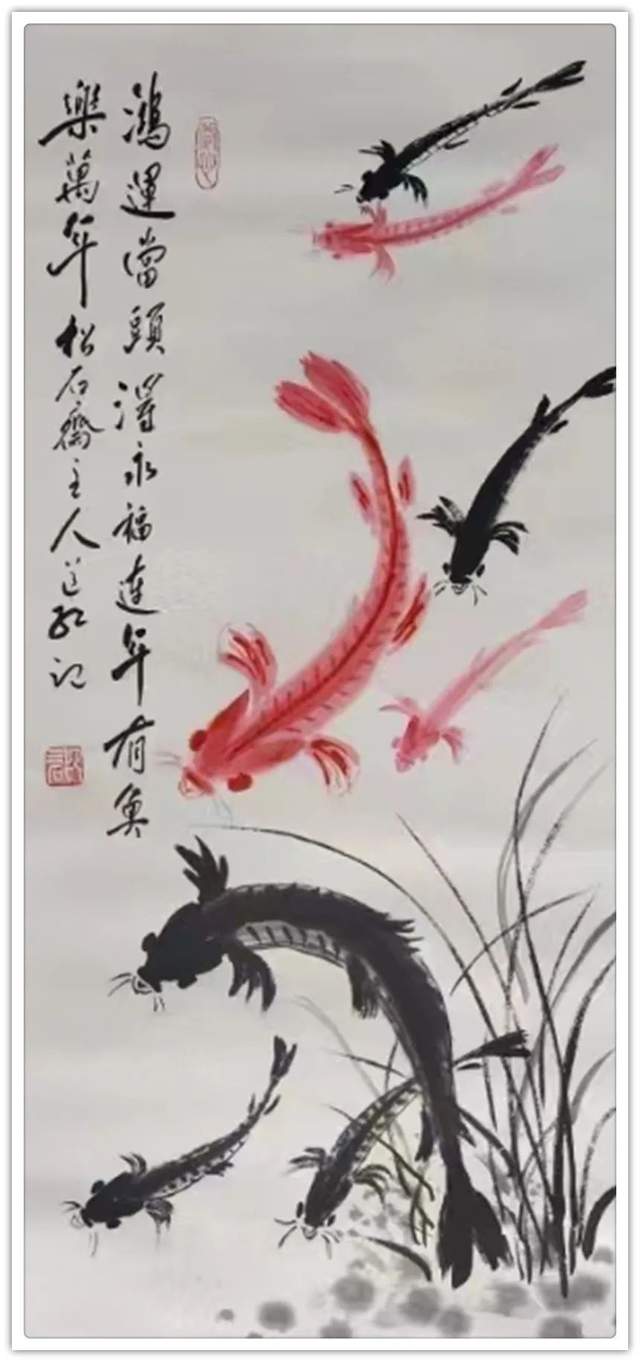 鴻運當頭澤永福連年有魚
樂萬年松石齋主人記